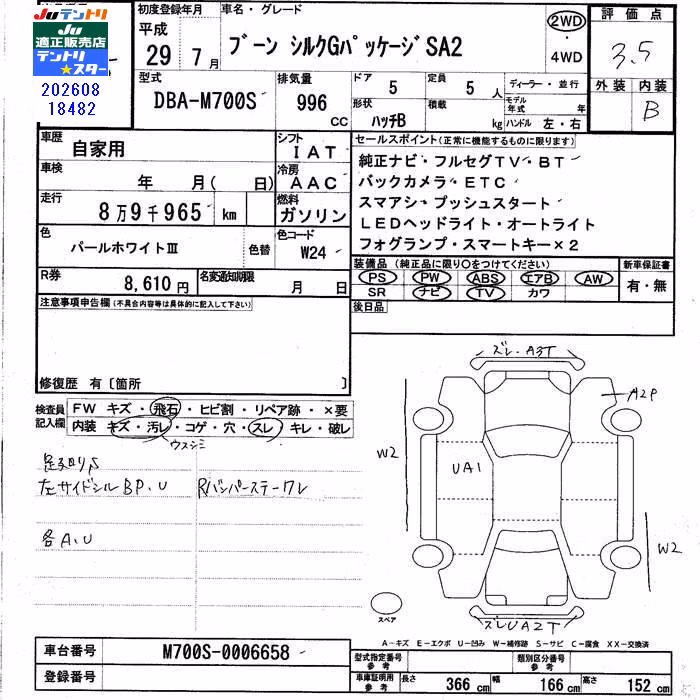 Juテントリ
JU
適正販売店
テントリ
★スター
202608
18482
初度登録年月
平成
29年7月
車名・グレード
ブーン シルクGパッケージSA2
2WD
・
4WD
評価点
3.5
外装 内装
B
型式
DBA-M700S
排気量
996
cc
ドア
5
定員
5人
形状
ハッチB
積載
kg
ディーラー・並行
モデル年式 年
ハンドル 左・右
車歴
自家用
シフト
IAT
車検
年 月(日)
冷房
AAC
走行
8万9千965 km
燃料
ガソリン
色
パールホワイトⅢ
色替
色コード
W24
R券
8,610円
名変通知期限
月 日
セールスポイント(正常に機能するものに限り)
純正ナビ・フルセグTV・BT
バックカメラ・ETC
スマアシ・プッシュスタート
LEDヘッドライト・オートライト
フォグランプ・スマートキー×2
装備品(純正品に限り○をつけてください)
PS PW ABS エアB AW
SR ナビ TV カワ
新車保証書
有・無
後日品
注意事項申告欄(不具合内容等は具体的に記入して下さい)
修復歴 有〔箇所 〕
検査員
記入欄
FW キズ・飛石・ヒビ割・リペア跡・×要
内装 キズ・汚レ・コゲ・穴・スレ・キレ・破レ
ウスシミ
足廻りS
左サイドシルBP.U
Rバンパーステーワレ
各A.U
ズレ・A3T
A2P
W2
UA1
W2
ズレUA2T
スペア
A-キズ E-エクボ U-凹み W-補修跡 S-サビ C-腐食 XX-交換済
車台番号
M700S-0006658
登録番号
型式指定番号
参考
類別区分番号
参考
車庫証明用
参考
長さ 366 cm 幅 166 cm 高さ 152 cm